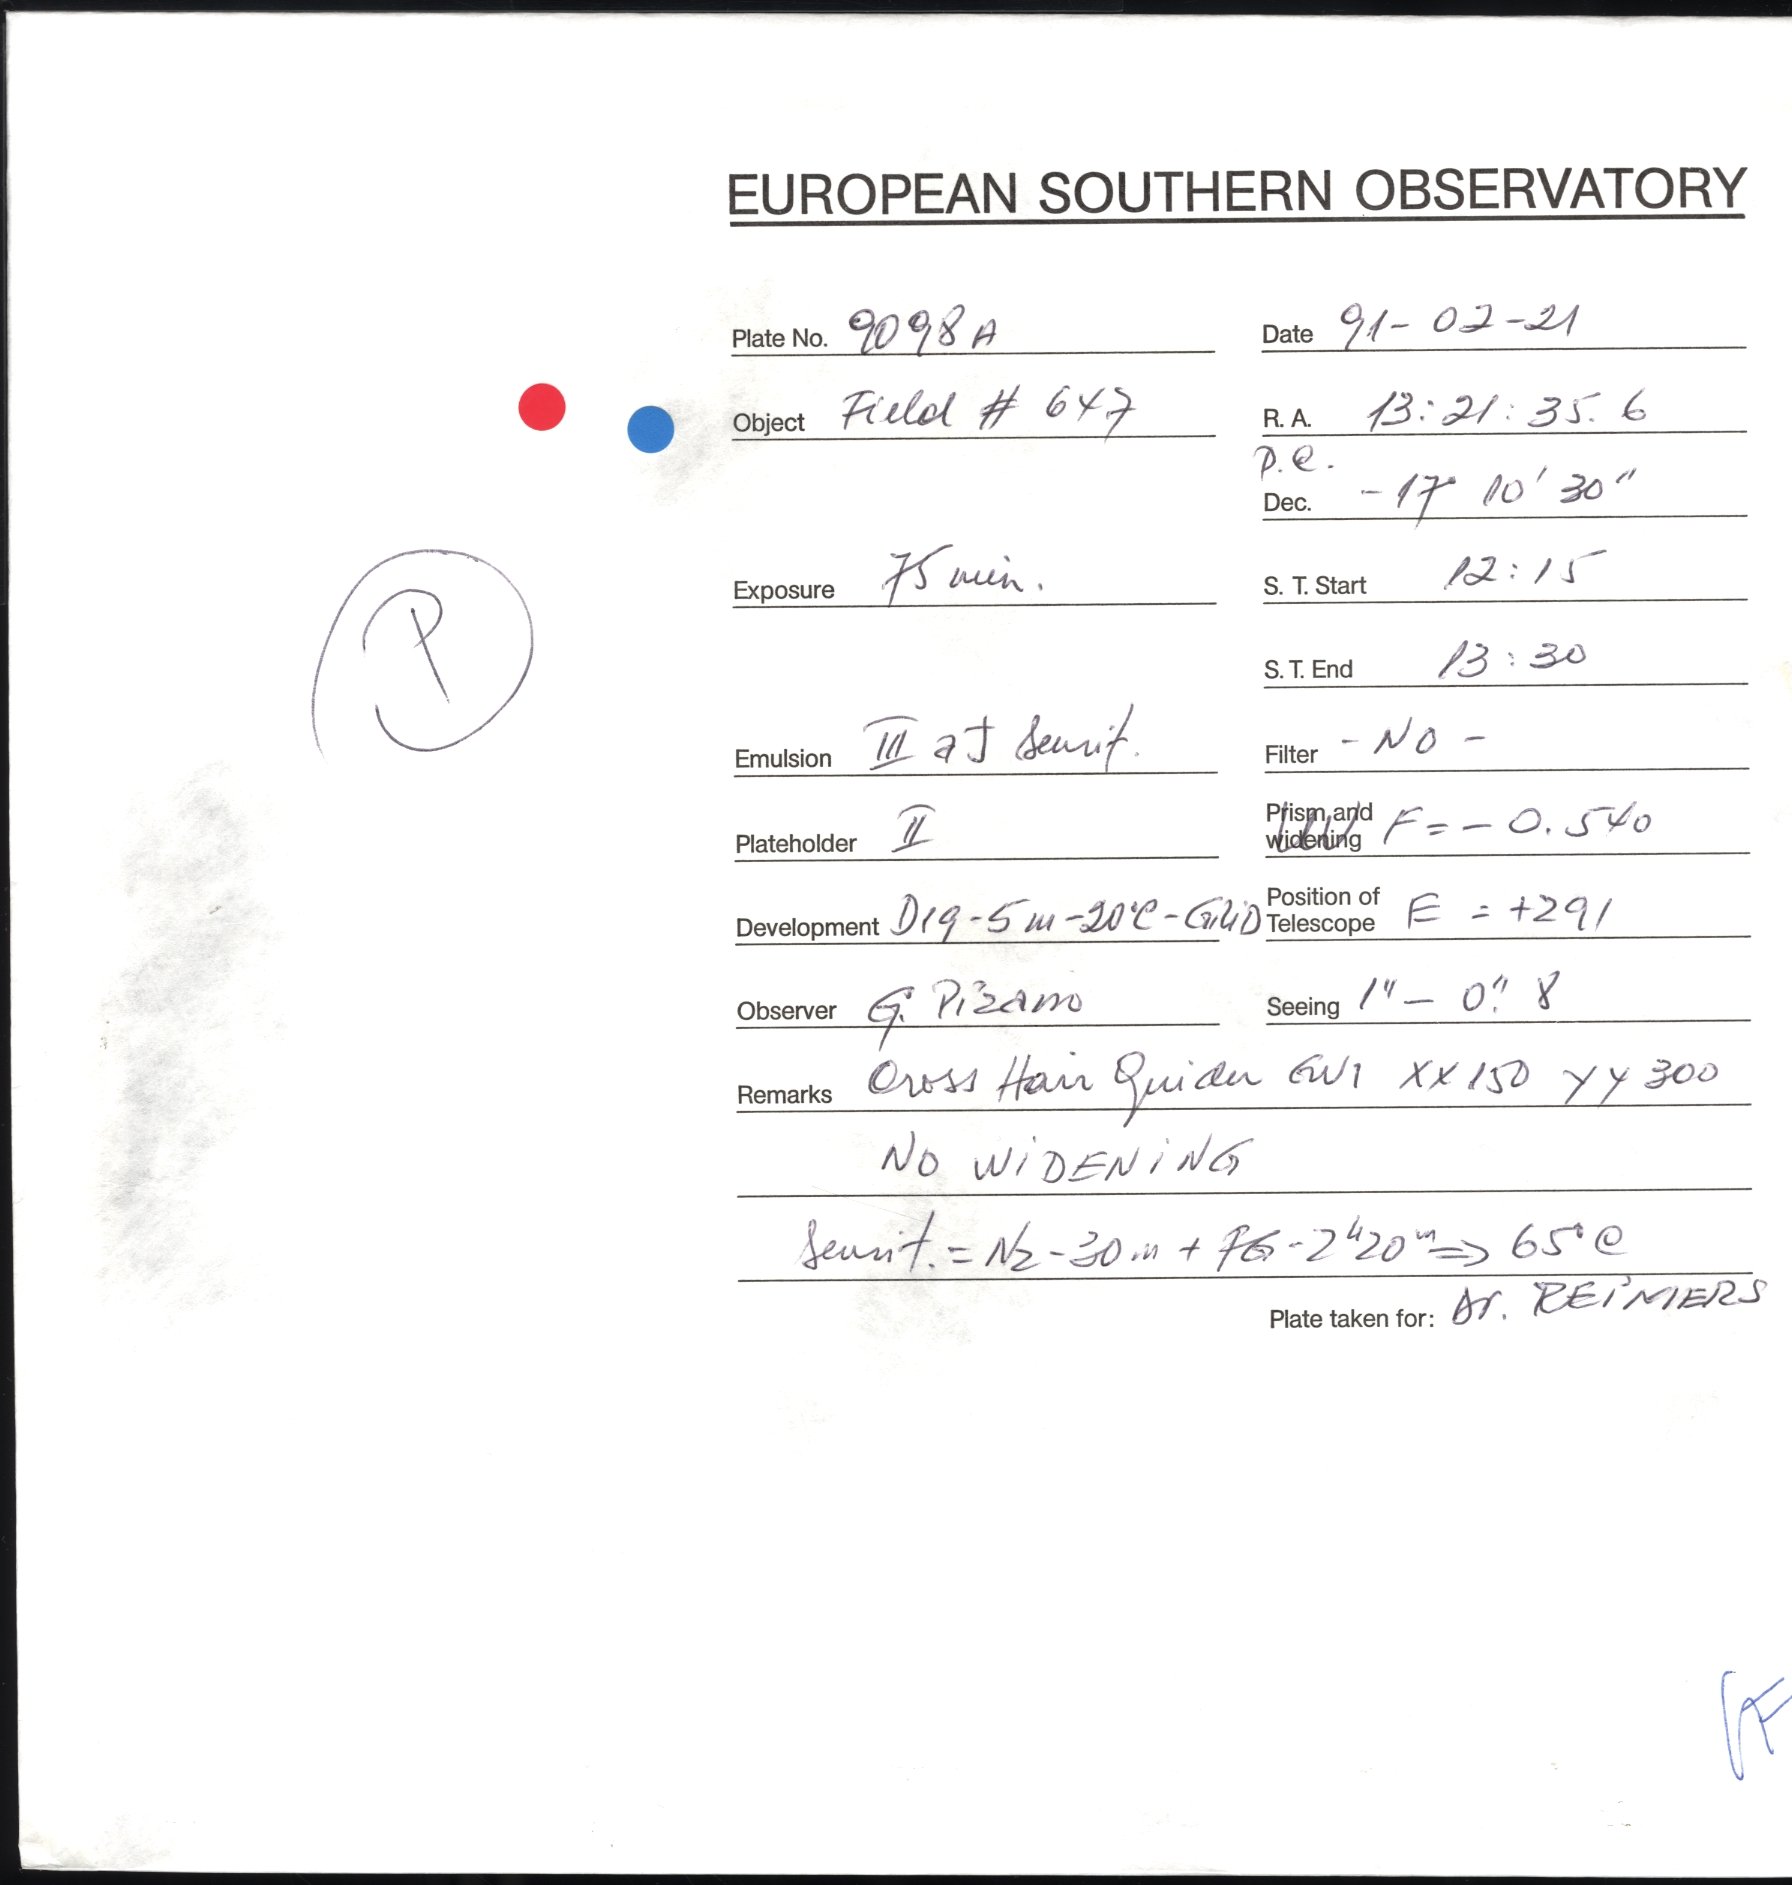 EUROPEAN SOUTHERN OBSERVATORY
Plate No. 9098A Date 91-02-21
Object Field # 647 R. A. 13:21:35.6
P.C.
Dec. -17° 10' 30"
P
Exposure 75 min. S. T. Start 12:15
S. T. End 13:30
Emulsion III aJ Sensit. Filter - NO -
Plateholder II Prism and widening F = - 0.540
Development D19-5m-20°C- Position of Telescope E = +291
Observer G. Pizarro Seeing 1" - 0".8
Remarks Cross Hair Guider GW1 XX 150 YY 300
NO WIDENING
Sensit. = N2-30m + FG-2h20m => 65°C
Plate taken for: Dr. REIMERS